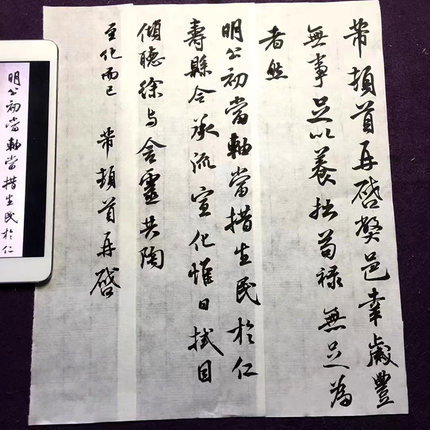 芾頓首再啓弊邑幸歲豐
無事足以養拙苟祿 無足為
者然
明公初當軸當措生民於仁
壽縣令承流宣化惟日拭目
傾聽徐与含靈共陶
至化而已 芾頓首再啓
明公初當軸當措生民於仁